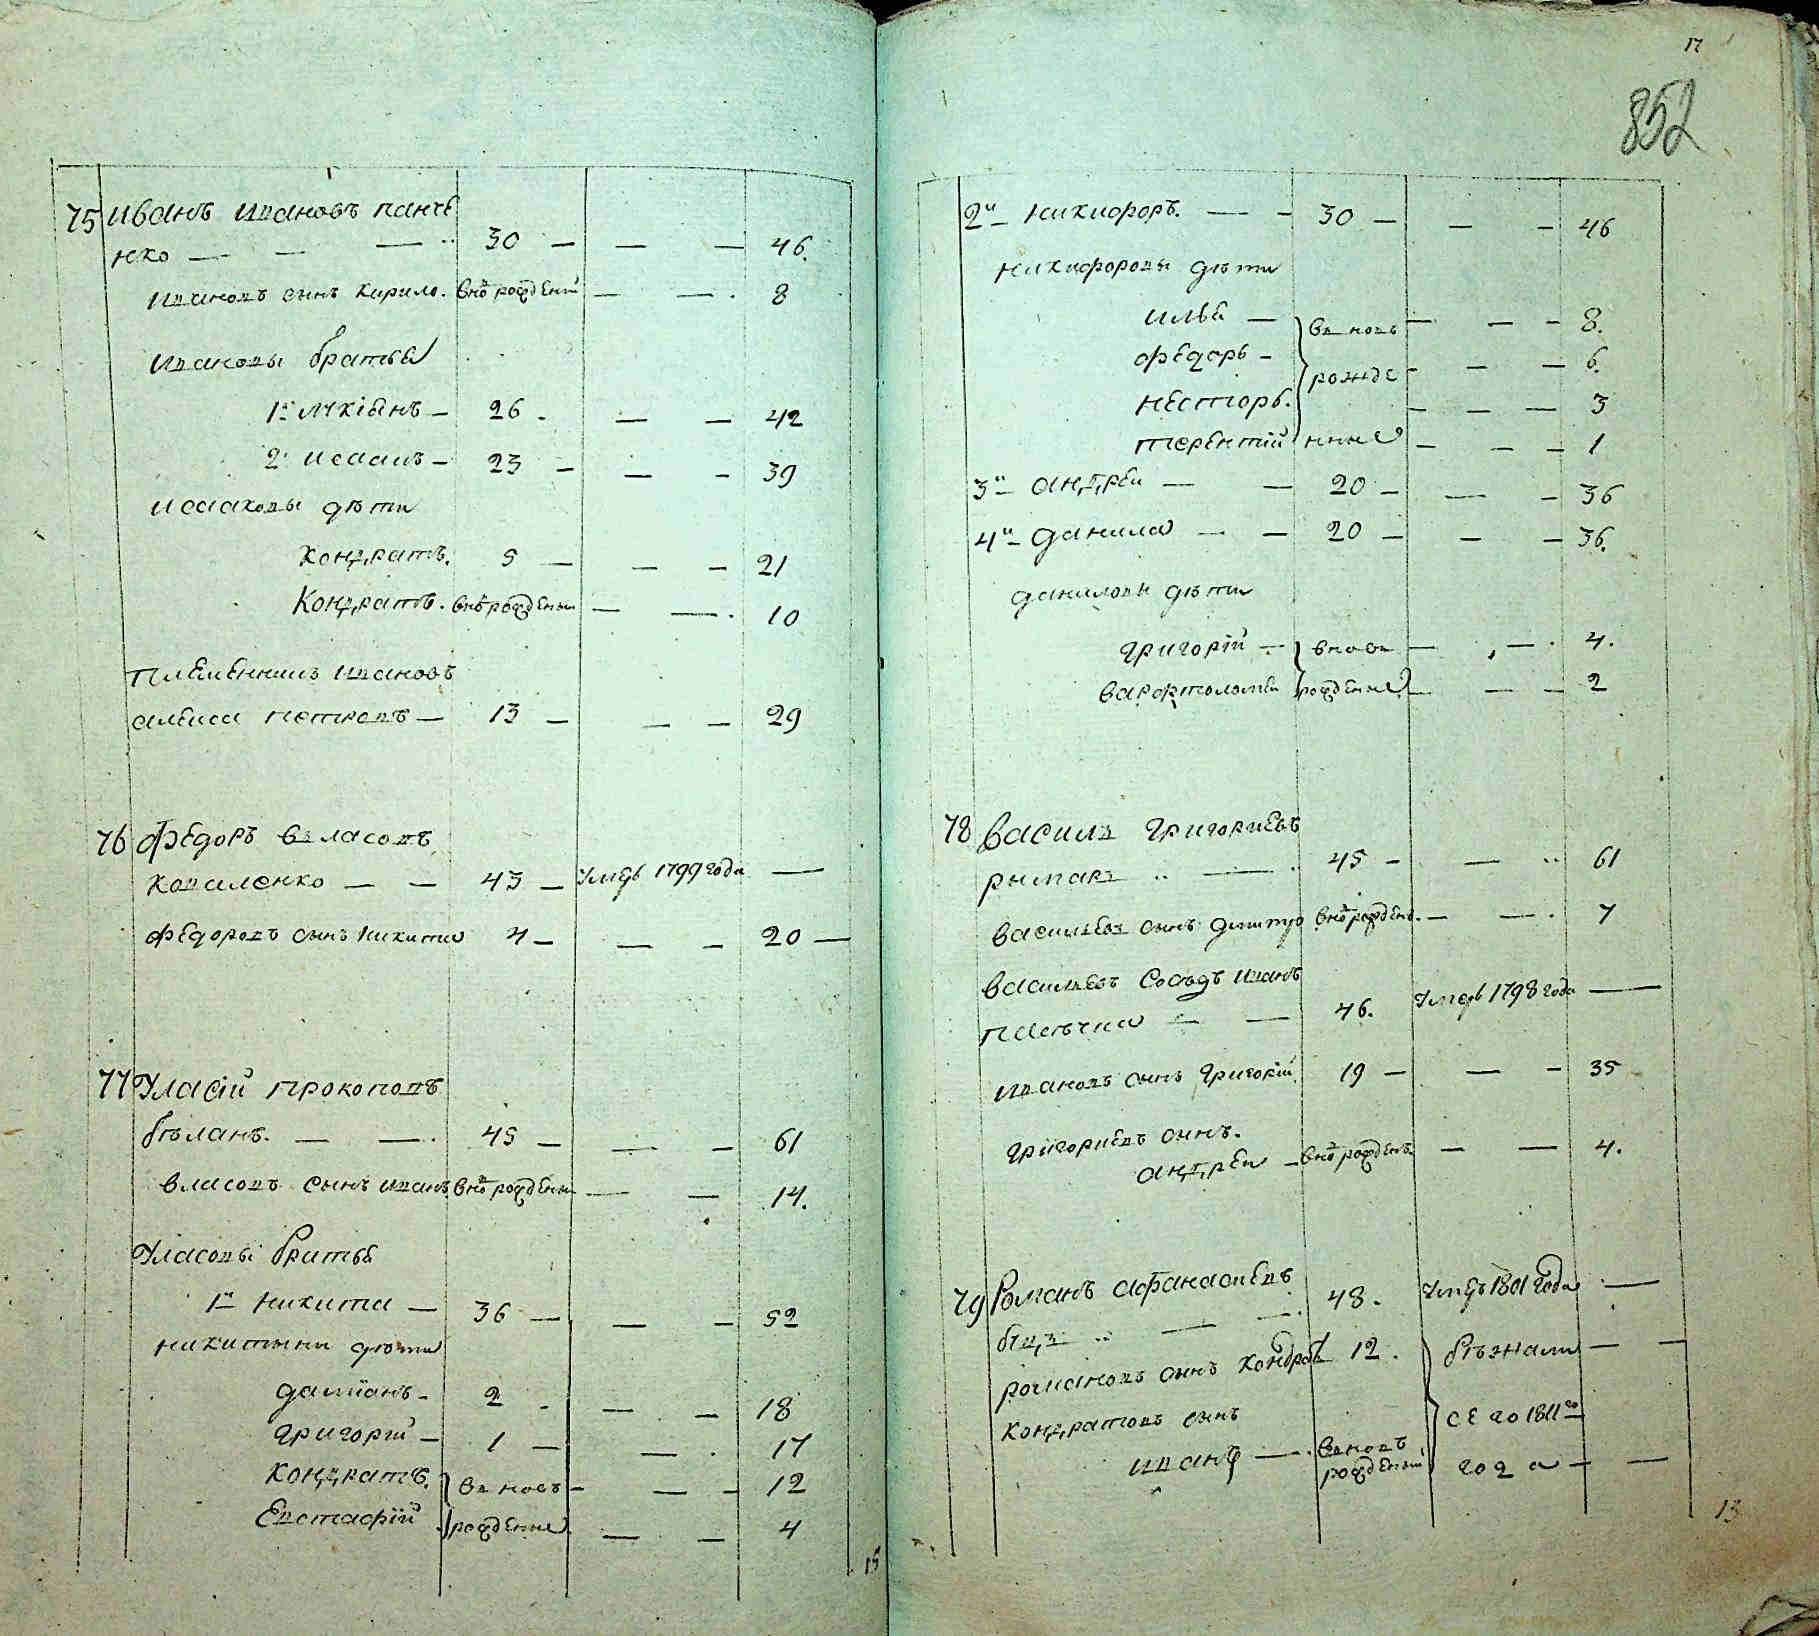 75 Иванъ Ивановъ Панче
нко — — 30 — — — 46.
Ивановъ сынъ Кирило. вно рожденый — — 8
Ивановы братья
1й Лукіянъ — 26 — — 42
2й Исаакъ — 23 — — — 39
Исааковы дѣти
Кондратъ. 5 — — — 21
Кондратъ. вно рожденый — — 10
Племенникъ Ивановъ
Алекса Петровъ — 13 — — — 29
76 Федоръ Власовъ
Коваленко — — 43 — умеръ 1799 года —
Федоровъ сынъ Никита 4 — — — 20 —
77 Уласій Прокоповъ
бѣланъ. — — 45 — — — 61
Власовъ сынъ Иванъ вно рожденый — — 14.
Уласовы братья
1й Никита — 36 — — — 52
Никитины дѣти
Даміянъ — 2 — — 18
Григорій — 1 — — 17
Кондратъ. вновъ — — — 12
Евстафій рожденые — — 4
15
17
852
2й Никифоръ. — — 30 — — — 46
Никифоровы дѣти
Илья — вновь — — — 8.
Федоръ — рожде — — — 6.
Несторъ. — — — 3
Терентій нные — — — 1
3й Андрей — — 20 — — — 36
4й Данила — — 20 — — — 36.
Даниловы дѣти
Григорій — вновь — — 4.
Варфтоломей рожденые — — — 2
78 Василь Григориевъ
Рымарь — 45 — — 61
Васильевъ сынъ Дмитро вно рожден. — — 7
Васильевъ Сосѣдъ Иванъ
— — 46. умеръ 1798 года —
Ивановъ сынъ Григорій 19 — — — 35
Григориевъ сынъ.
Андрей — вно рожденъ. — — 4.
79 Романъ Афанасиевъ
— 48. умеръ 1801 года —
Романовъ сынъ Кондратъ 12. бѣжали — —
Кондратовъ сынъ сего 1811го
Иванъ — вновъ рожденый года — —
13